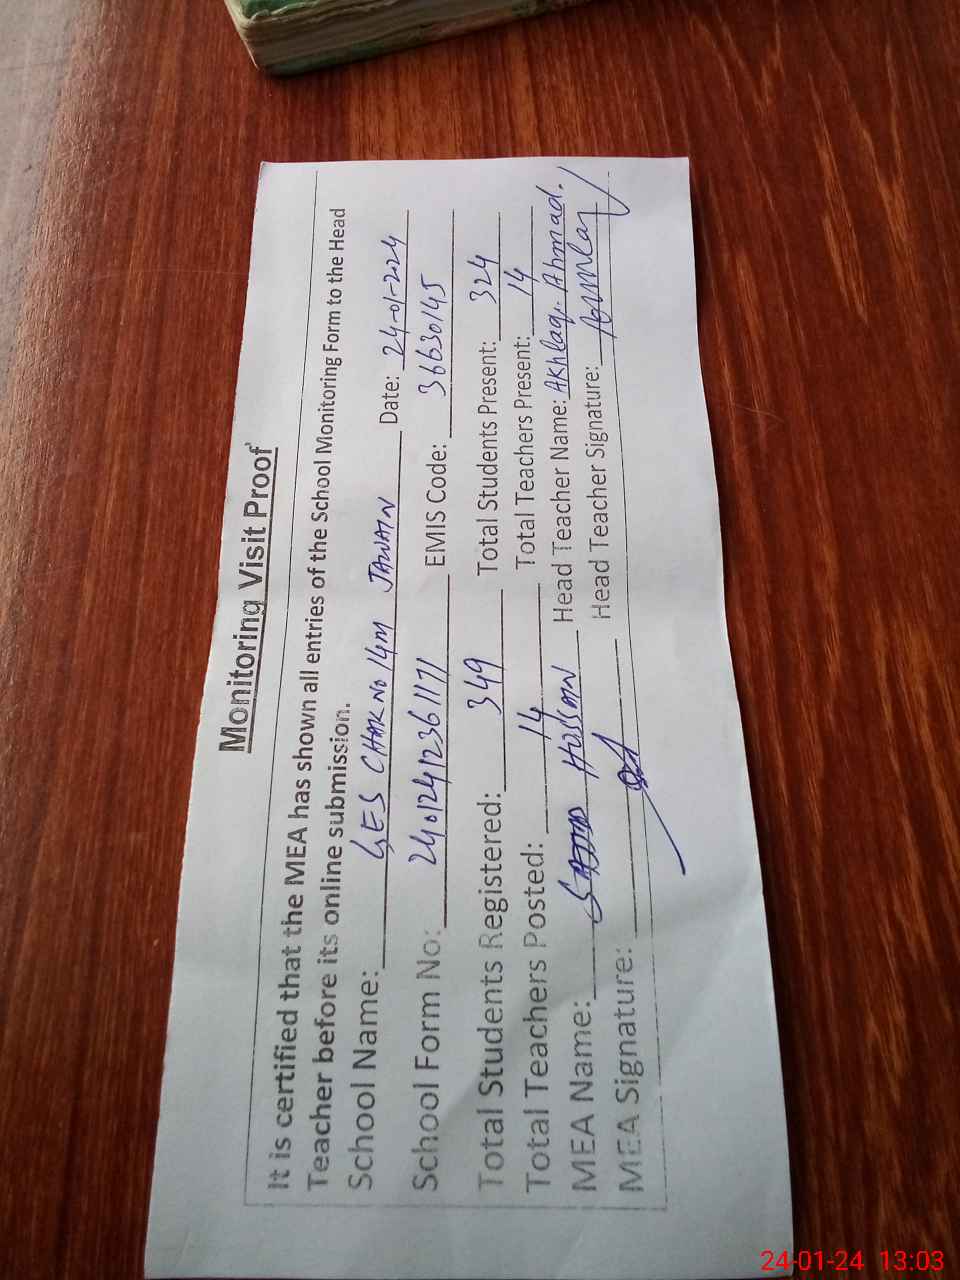 Monitoring Visit Proof
It is certified that the MEA has shown all entries of the School Monitoring Form to the Head
Teacher before its online submission.
School Name: GES CHAK No 14M JAWAIN Date: 24-01-2024
School Form No: 24012412361171 EMIS Code: 36630145
Total Students Registered: 349 Total Students Present: 324
Total Teachers Posted: 14 Total Teachers Present: 14
MEA Name: HUSSAIN Head Teacher Name: Akhlaq Ahmad.
MEA Signature: Head Teacher Signature:
24-01-24 13:03